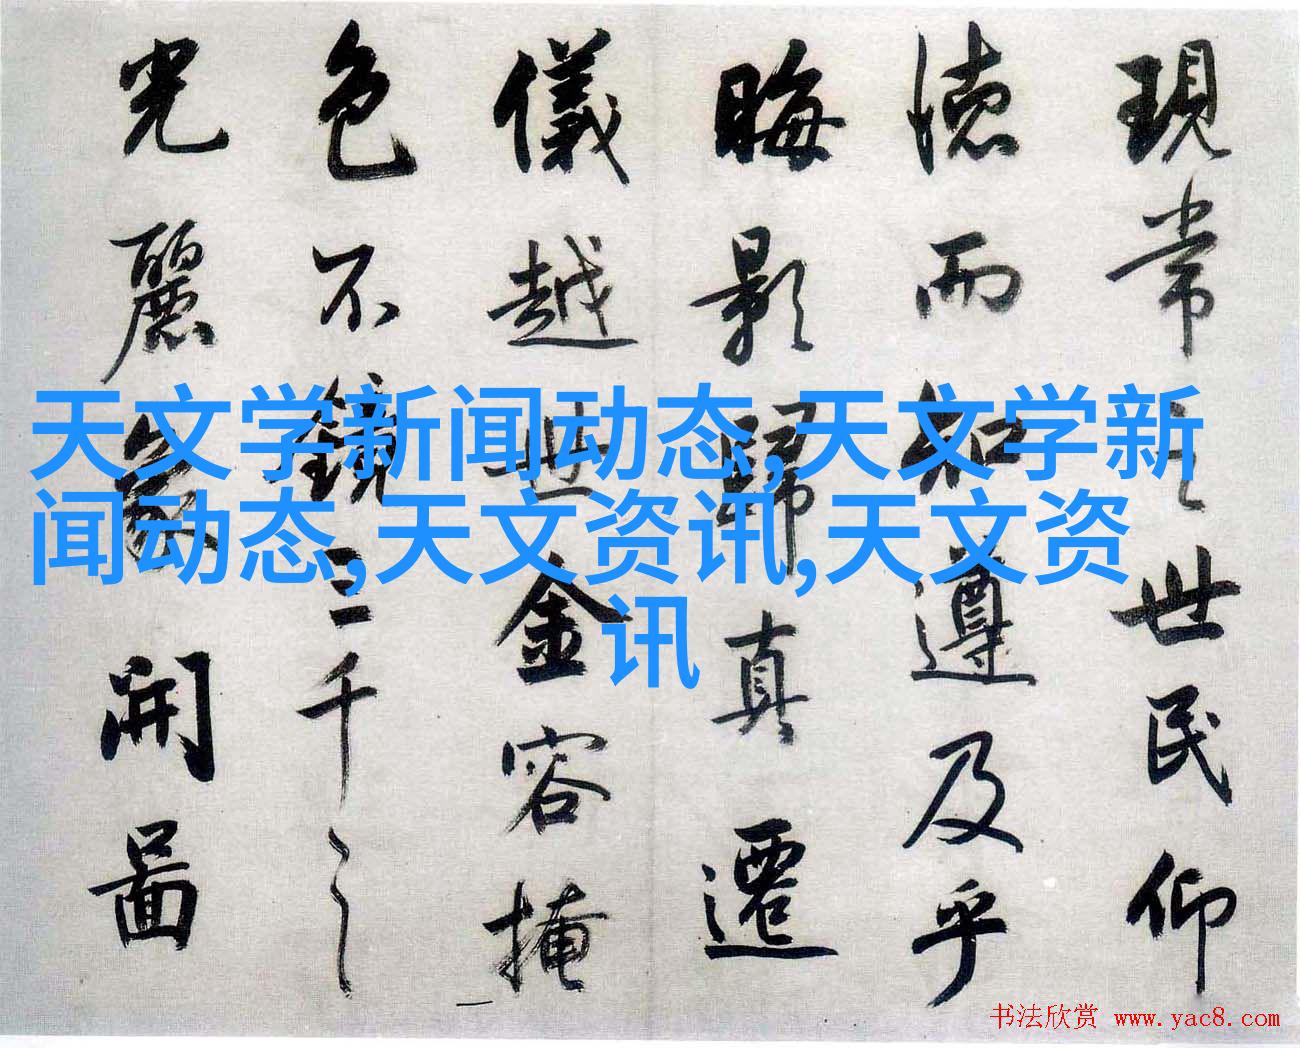 現常之世民仰
德而知遵及乎
晦影歸真遷
儀越世金容掩
色不鏡三千之
光麗象開圖
天文学新闻动态,天文学新
闻动态,天文资讯,天文资
讯
书法欣赏 www.yac8.com